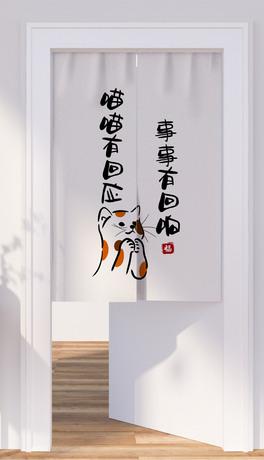 喵喵有回应
事事有回响
福